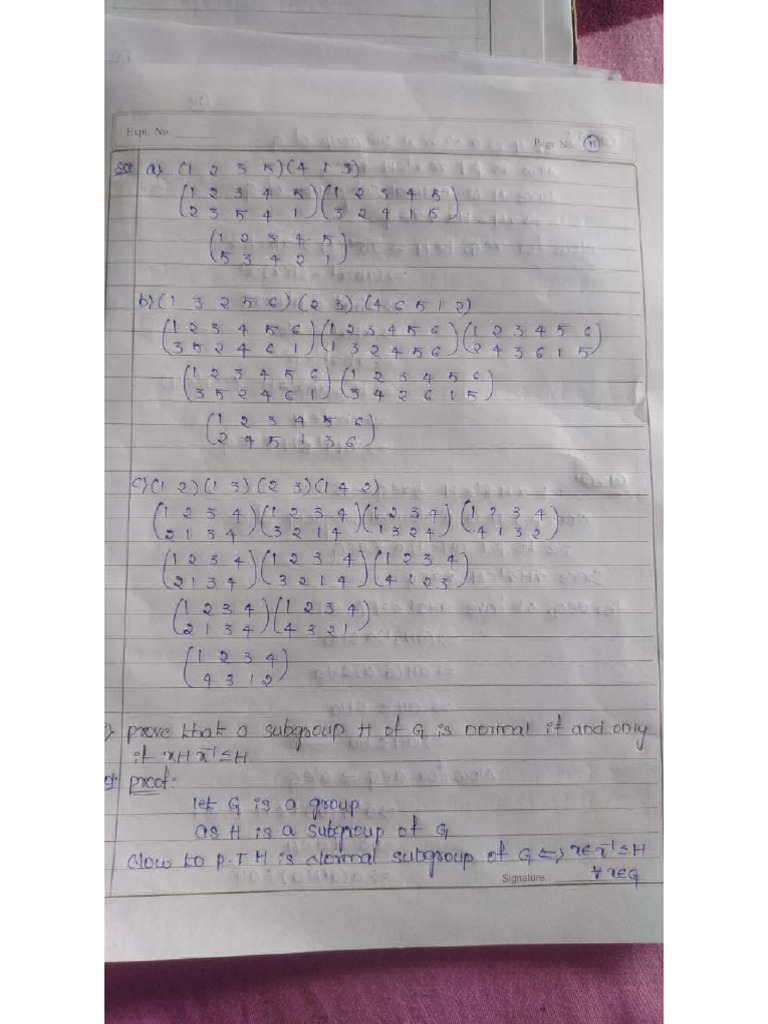 Expt. No.
Page No. 11
Sol a) (1 2 3 5)(4 1 3)
(1 2 3 4 5)(1 2 3 4 5)
(2 3 5 4 1)(3 2 4 1 5)
(1 2 3 4 5)
(5 3 4 2 1)
b) (1 3 2 5 6)(2 3)(4 6 5 1 2)
(1 2 3 4 5 6)(1 2 3 4 5 6)(1 2 3 4 5 6)
(3 5 2 4 6 1)(1 3 2 4 5 6)(2 4 3 6 1 5)
(1 2 3 4 5 6)(1 2 3 4 5 6)
(3 5 2 4 6 1)(3 4 2 6 1 5)
(1 2 3 4 5 6)
(2 4 5 1 3 6)
c) (1 2)(1 3)(2 3)(1 4 2)
(1 2 3 4)(1 2 3 4)(1 2 3 4)(1 2 3 4)
(2 1 3 4)(3 2 1 4)(1 3 2 4)(4 1 3 2)
(1 2 3 4)(1 2 3 4)(1 2 3 4)
(2 1 3 4)(3 2 1 4)(4 1 2 3)
(1 2 3 4)(1 2 3 4)
(2 1 3 4)(4 3 2 1)
(1 2 3 4)
(4 3 1 2)
prove that a subgroup H of G is normal if and only
if xHx⁻¹ ≤ H
proof:
let G is a group
as H is a subgroup of G
Now to P.T H is Normal subgroup of G ⇔ xHx⁻¹ ≤ H
∀ x∈G
Signature